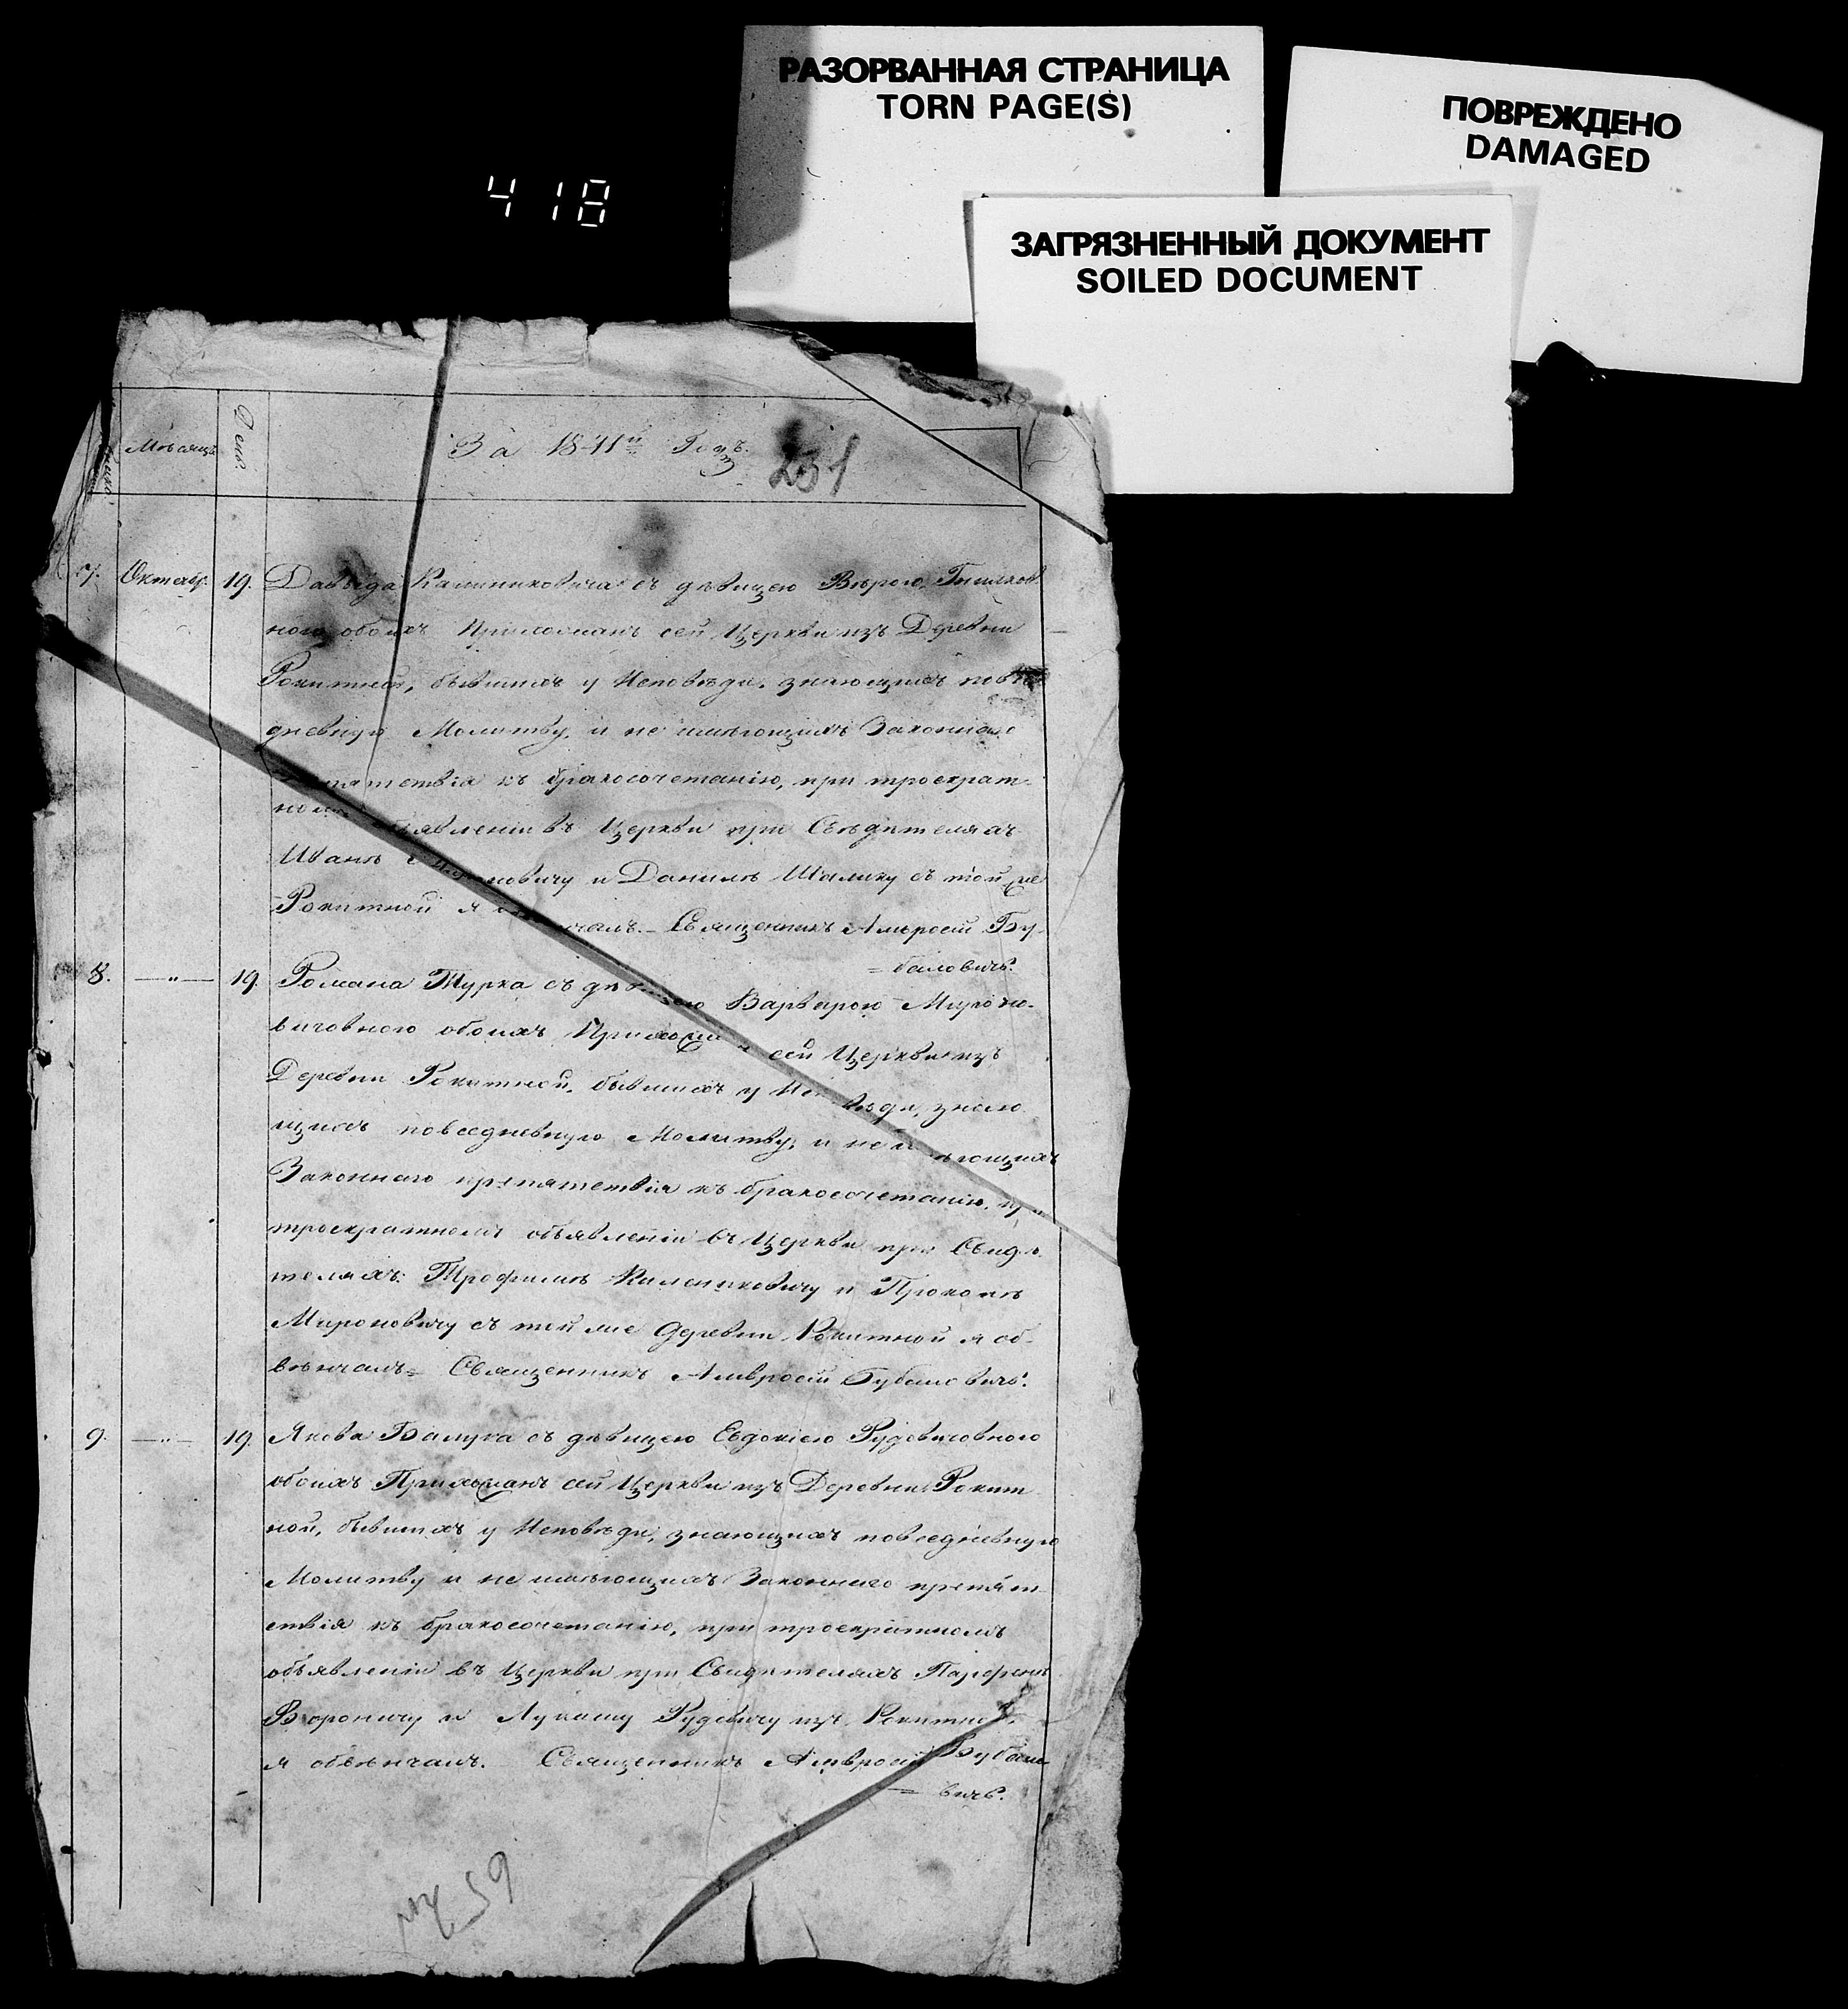 РАЗОРВАННАЯ СТРАНИЦА
TORN PAGE(S)
ПОВРЕЖДЕНО
DAMAGED
ЗАГРЯЗНЕННЫЙ ДОКУМЕНТ
SOILED DOCUMENT
418
Мѣсяцъ
День.
За 1841й Годъ.
231
7. Октябр. 19. Давыда Калиниковича съ дѣвицею Вѣрою
обоихъ Прихожанъ сей Церкви изъ Деревни
Рокитной, бывшихъ у Исповѣди, знающихъ
дневную Молитву, и не имѣющихъ Законнаго
къ бракосочетанію, при троекрат-
въ Церкви при Свѣдителяхъ
Иванѣ и Данилѣ Шалику съ той же
Рокитной я Священникъ Амвросій Бу-
= баловичъ.
8. —"— 19. Романа Турка съ Варварою Мироно-
вичовною обоихъ сей Церкви изъ
Деревни Рокитной, бывшихъ у знаю
щихъ повседневную Молитву, и не
Законнаго препятствія къ бракосочетанію,
троекратномъ объявленіи въ Церкви при Свидѣ
теляхъ: Трофимѣ Калениковичу и Прокопѣ
Мироновичу съ той же Деревни Рокитной я об-
вѣнчалъ = Священникъ Амвросій Бубаловичъ.
9. —"— 19. Якова Балука съ дѣвицею Евдокіею Рудовичовною
обоихъ Прихожанъ сей Церкви изъ Деревни Рокит
ной, бывшихъ у Исповѣди, знающихъ повседневную
Молитву и не имѣющихъ Законнаго препят-
ствія къ бракосочетанію, при троекратномъ
объявленіи въ Церкви при Свидѣтеляхъ Парфенѣ
Вороничу и Лукашу Рудовичу изъ Рокитной
я обвѣнчалъ. Священникъ Амвросій Бубало
= вичъ.
59